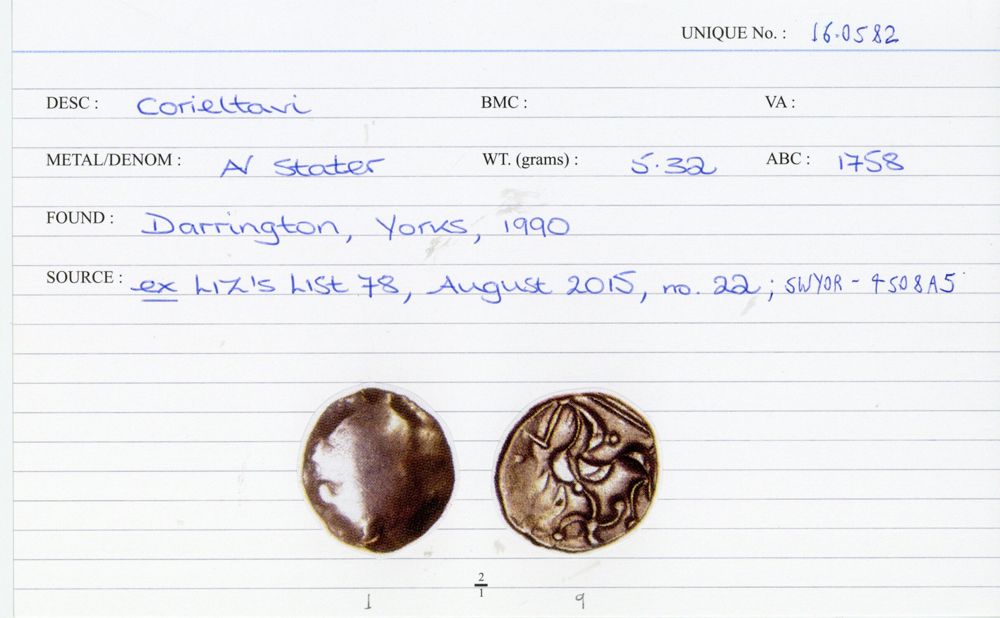 UNIQUE No. : 16.0582
DESC : Corieltavi BMC : VA :
METAL/DENOM : AV Stater WT. (grams) : 5.32 ABC : 1758
FOUND : Darrington, Yorks, 1990
SOURCE : ex LIZ'S LISt 78, August 2015, no. 22; SWYOR - 4508A5
2
1
1 9